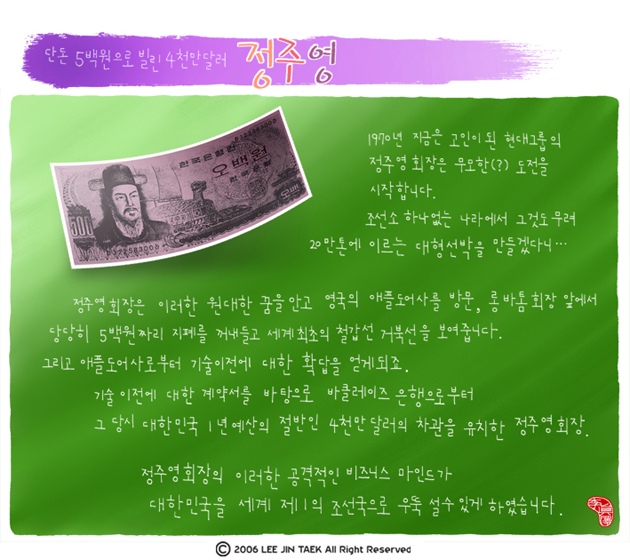 단돈 5백원으로 빌린 4천만달러 정주영
한국은행권
오백원
한국은행
오백
1970년 지금은 고인이 된 현대그룹의
정주영 회장은 무모한(?) 도전을
시작합니다.
조선소 하나없는 나라에서 그것도 무려
20만톤에 이르는 대형선박을 만들겠다니...
정주영 회장은 이러한 원대한 꿈을 안고 영국의 애플도어사를 방문, 롱바톰 회장 앞에서
당당히 5백원짜리 지폐를 꺼내들고 세계최초의 철갑선 거북선을 보여줍니다.
그리고 애플도어사로부터 기술이전에 대한 확답을 얻게되죠.
기술 이전에 대한 계약서를 바탕으로 바클레이즈 은행으로부터
그 당시 대한민국 1년예산의 절반인 4천만달러의 차관을 유치한 정주영 회장.
정주영 회장의 이러한 공격적인 비즈니스 마인드가
대한민국을 세계 제1의 조선국으로 우뚝 설수 있게 하였습니다.
© 2006 LEE JIN TAEK All Right Reserved